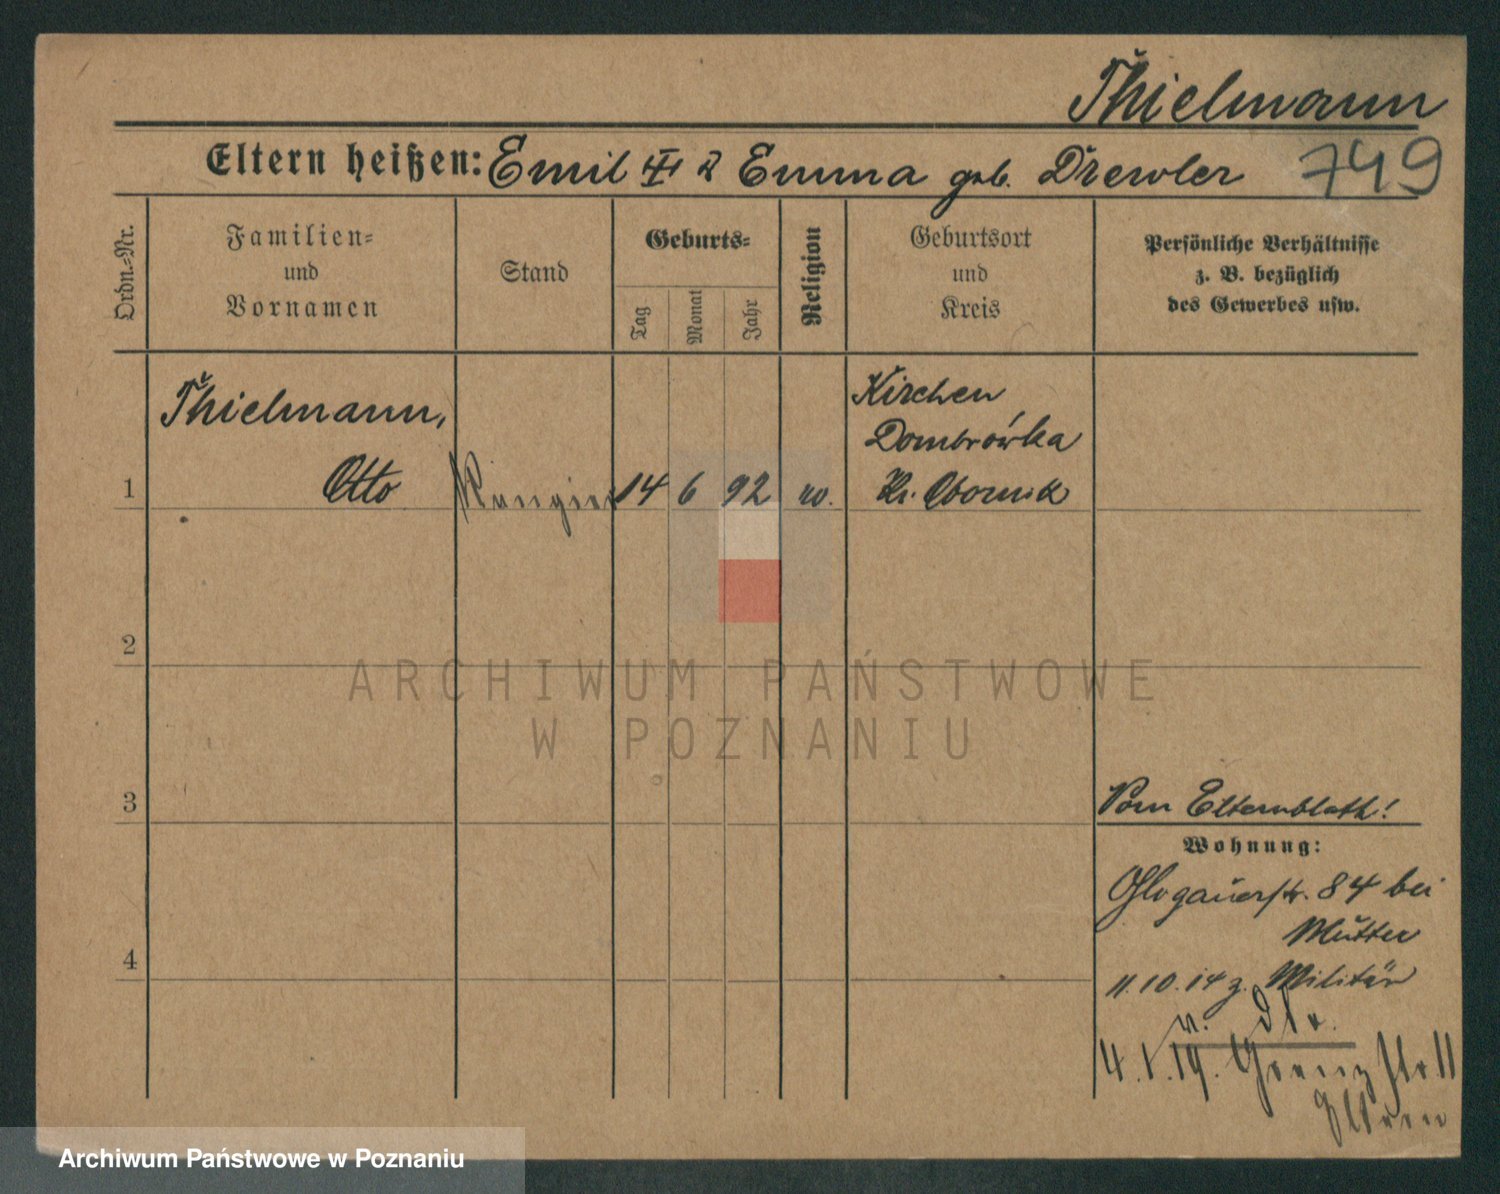 Thielmann
Eltern heißen: Emil III & Emma geb. Drewler
749
Ordn.-Nr.
Familien-
und
Vornamen
Stand
Geburts-
Tag
Monat
Jahr
Religion
Geburtsort
und
Kreis
Persönliche Verhältnisse
z. B. bezüglich
des Gewerbes usw.
Thielmann,
1 Otto Rangier 14 6 92
Kirchen
Dombrówka
Kr. Obornik
2
3
4
Vom Elternblatt!
Wohnung:
Glogauerstr. 84 bei
Mutter
11.10.14 z. Militär
v. dto.
4.1.19. Grenzstr 11
Eltern
ARCHIWUM PAŃSTWOWE
W POZNANIU
Archiwum Państwowe w Poznaniu